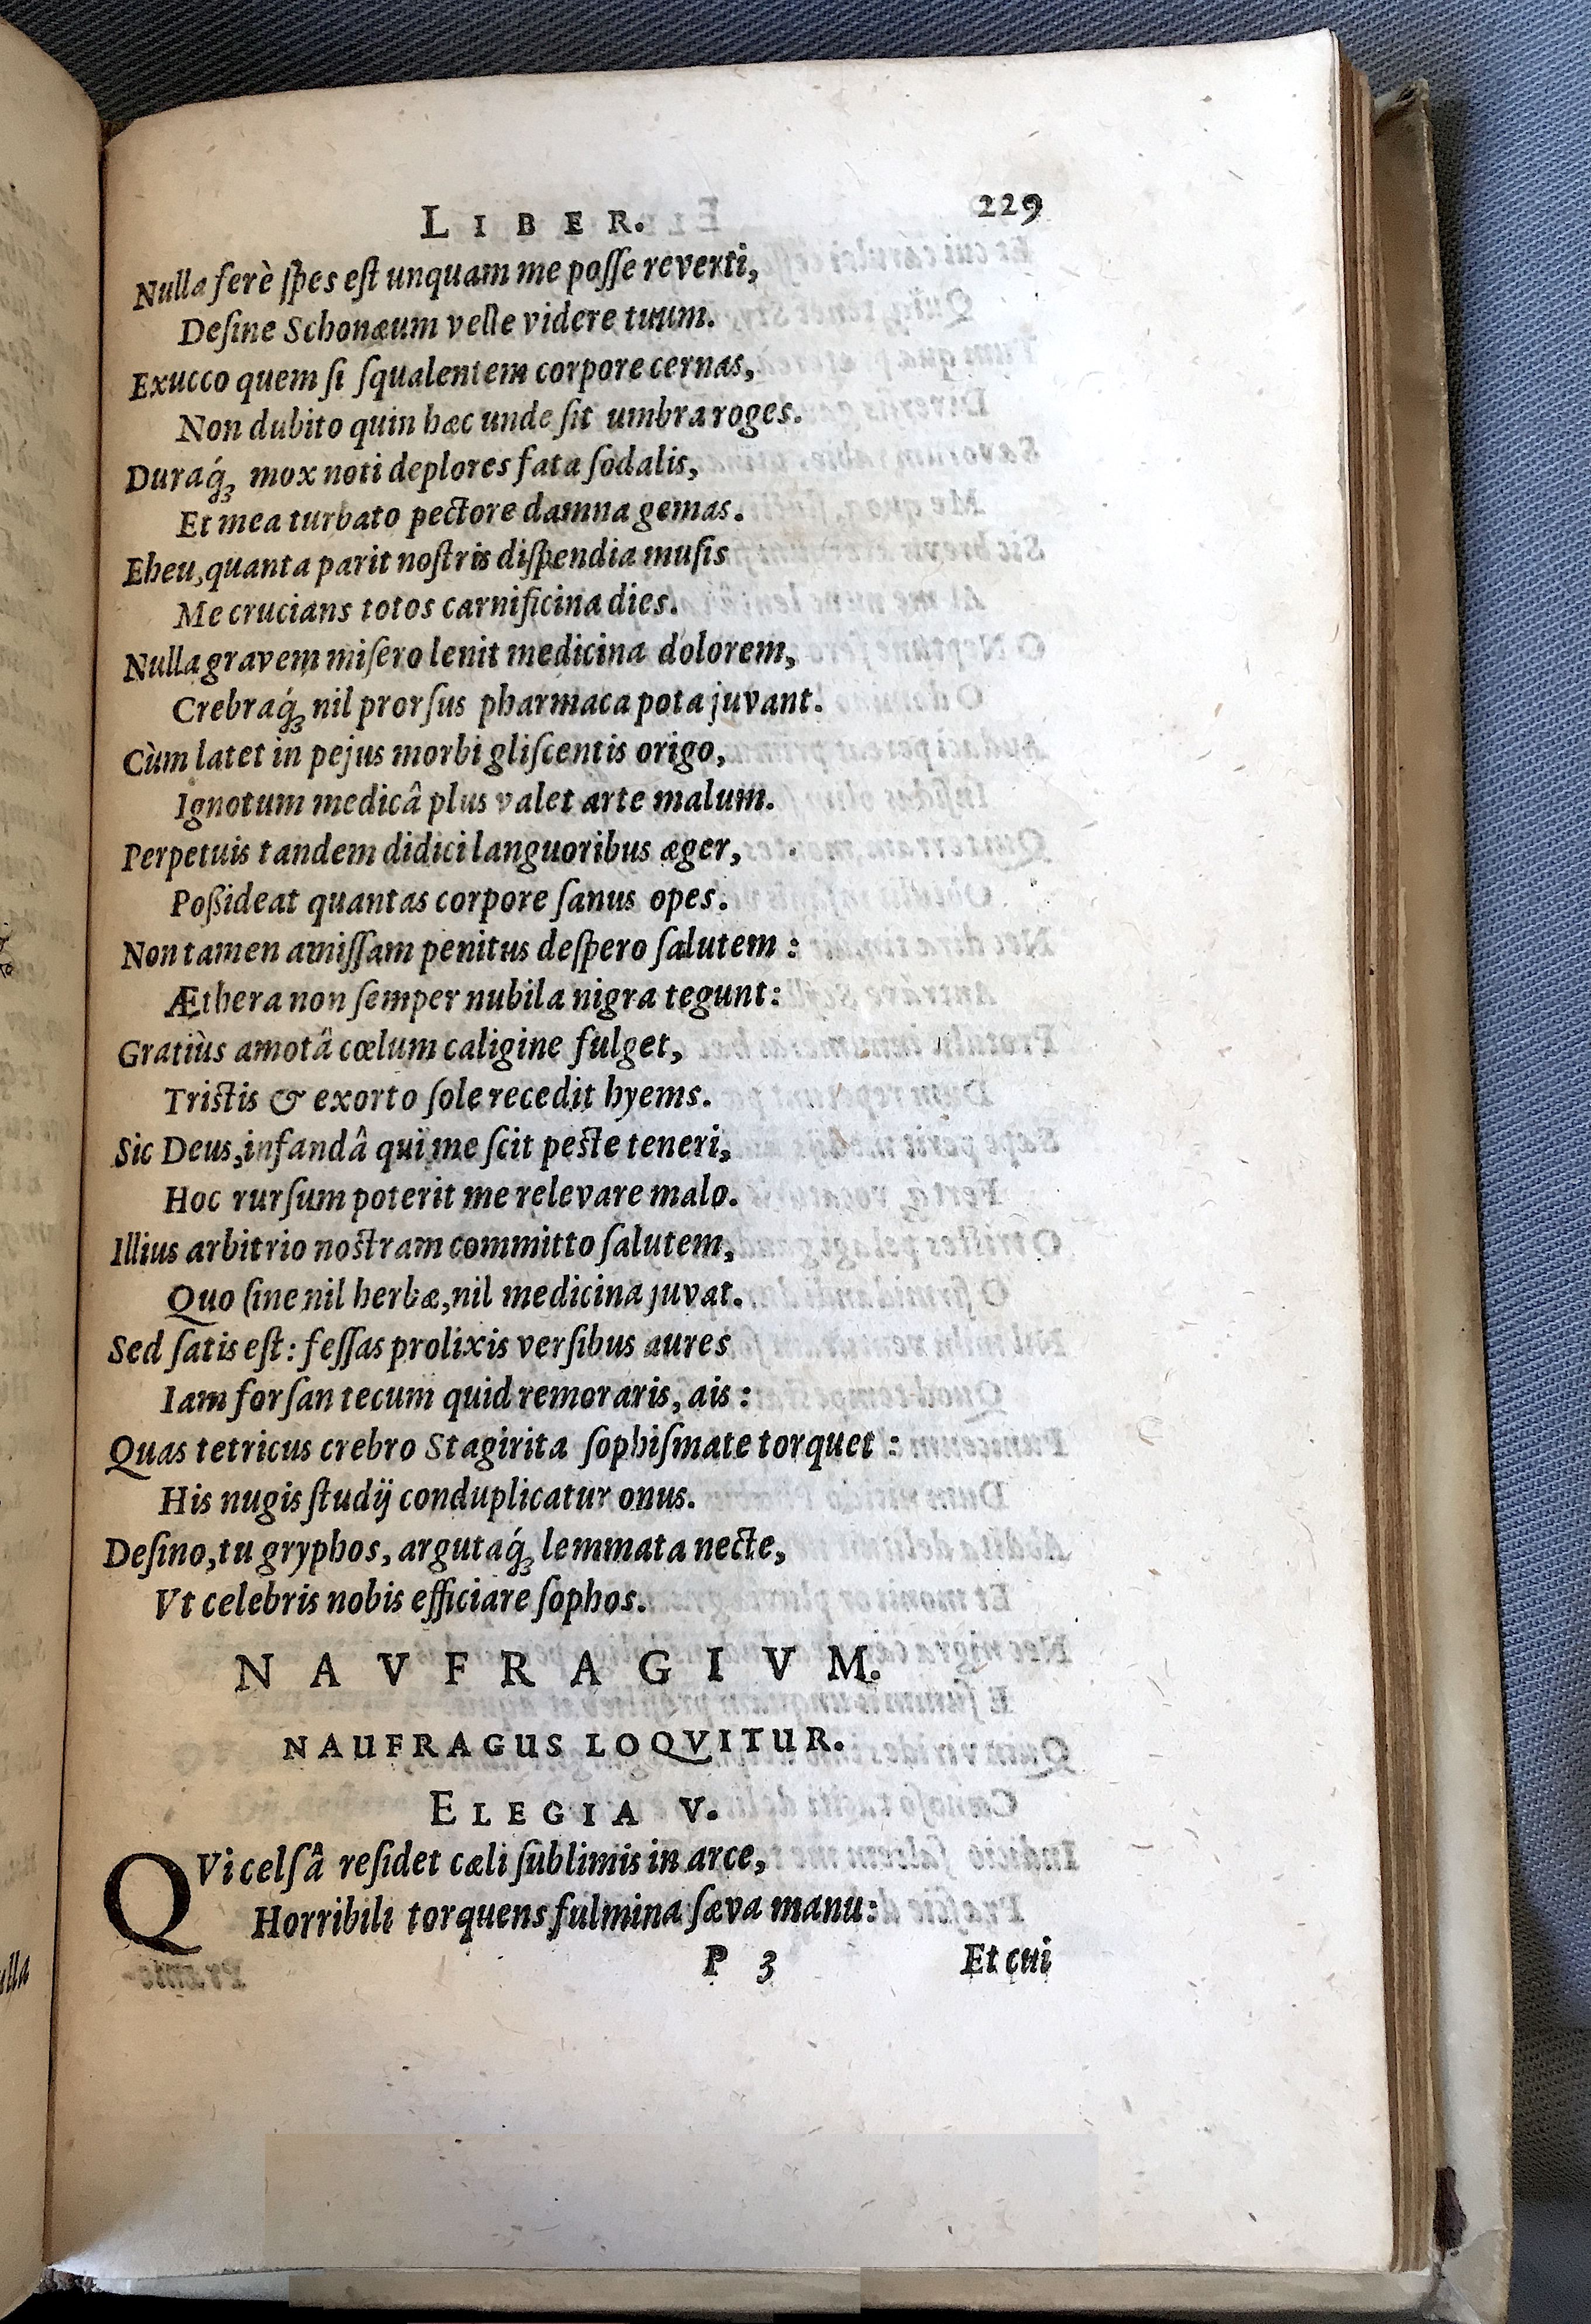 LIBER. 229
Nulla ferè ſpes eſt unquam me poſſe reverti,
Deſine Schonæum velle videre tuum.
Exucco quem ſi ſqualentem corpore cernas,
Non dubito quin hæc unde ſit umbra roges.
Duraq́ꝫ mox noti deplores fata ſodalis,
Et mea turbato pectore damna gemas.
Eheu, quanta parit noſtris diſpendia muſis
Me crucians totos carnificina dies.
Nulla gravem miſero lenit medicina dolorem,
Crebraq́ꝫ nil prorſus pharmaca pota juvant.
Cùm latet in pejus morbi gliſcentis origo,
Ignotum medicâ plus valet arte malum.
Perpetuis tandem didici languoribus æger,
Poßideat quantas corpore ſanus opes.
Non tamen amiſſam penitus deſpero ſalutem:
Æthera non ſemper nubila nigra tegunt:
Gratiùs amotâ cœlum caligine fulget,
Triſtis & exorto ſole recedit hyems.
Sic Deus, infandâ qui me ſcit peſte teneri,
Hoc rurſum poterit me relevare malo.
Illius arbitrio noſtram committo ſalutem,
Quo ſine nil herbæ, nil medicina juvat.
Sed ſatis eſt: feſſas prolixis verſibus aures
Iam forſan tecum quid remoraris, ais:
Quas tetricus crebro Stagirita ſophiſmate torquet:
His nugis ſtudij conduplicatur onus.
Deſino, tu gryphos, argutaq́ꝫ lemmata necte,
Vt celebris nobis efficiare ſophos.
NAVFRAGIVM.
NAUFRAGUS LOQVITUR.
ELEGIA V.
QVi celſâ reſidet cæli ſublimis in arce,
Horribili torquens fulmina ſæva manu:
P 3 Et cui